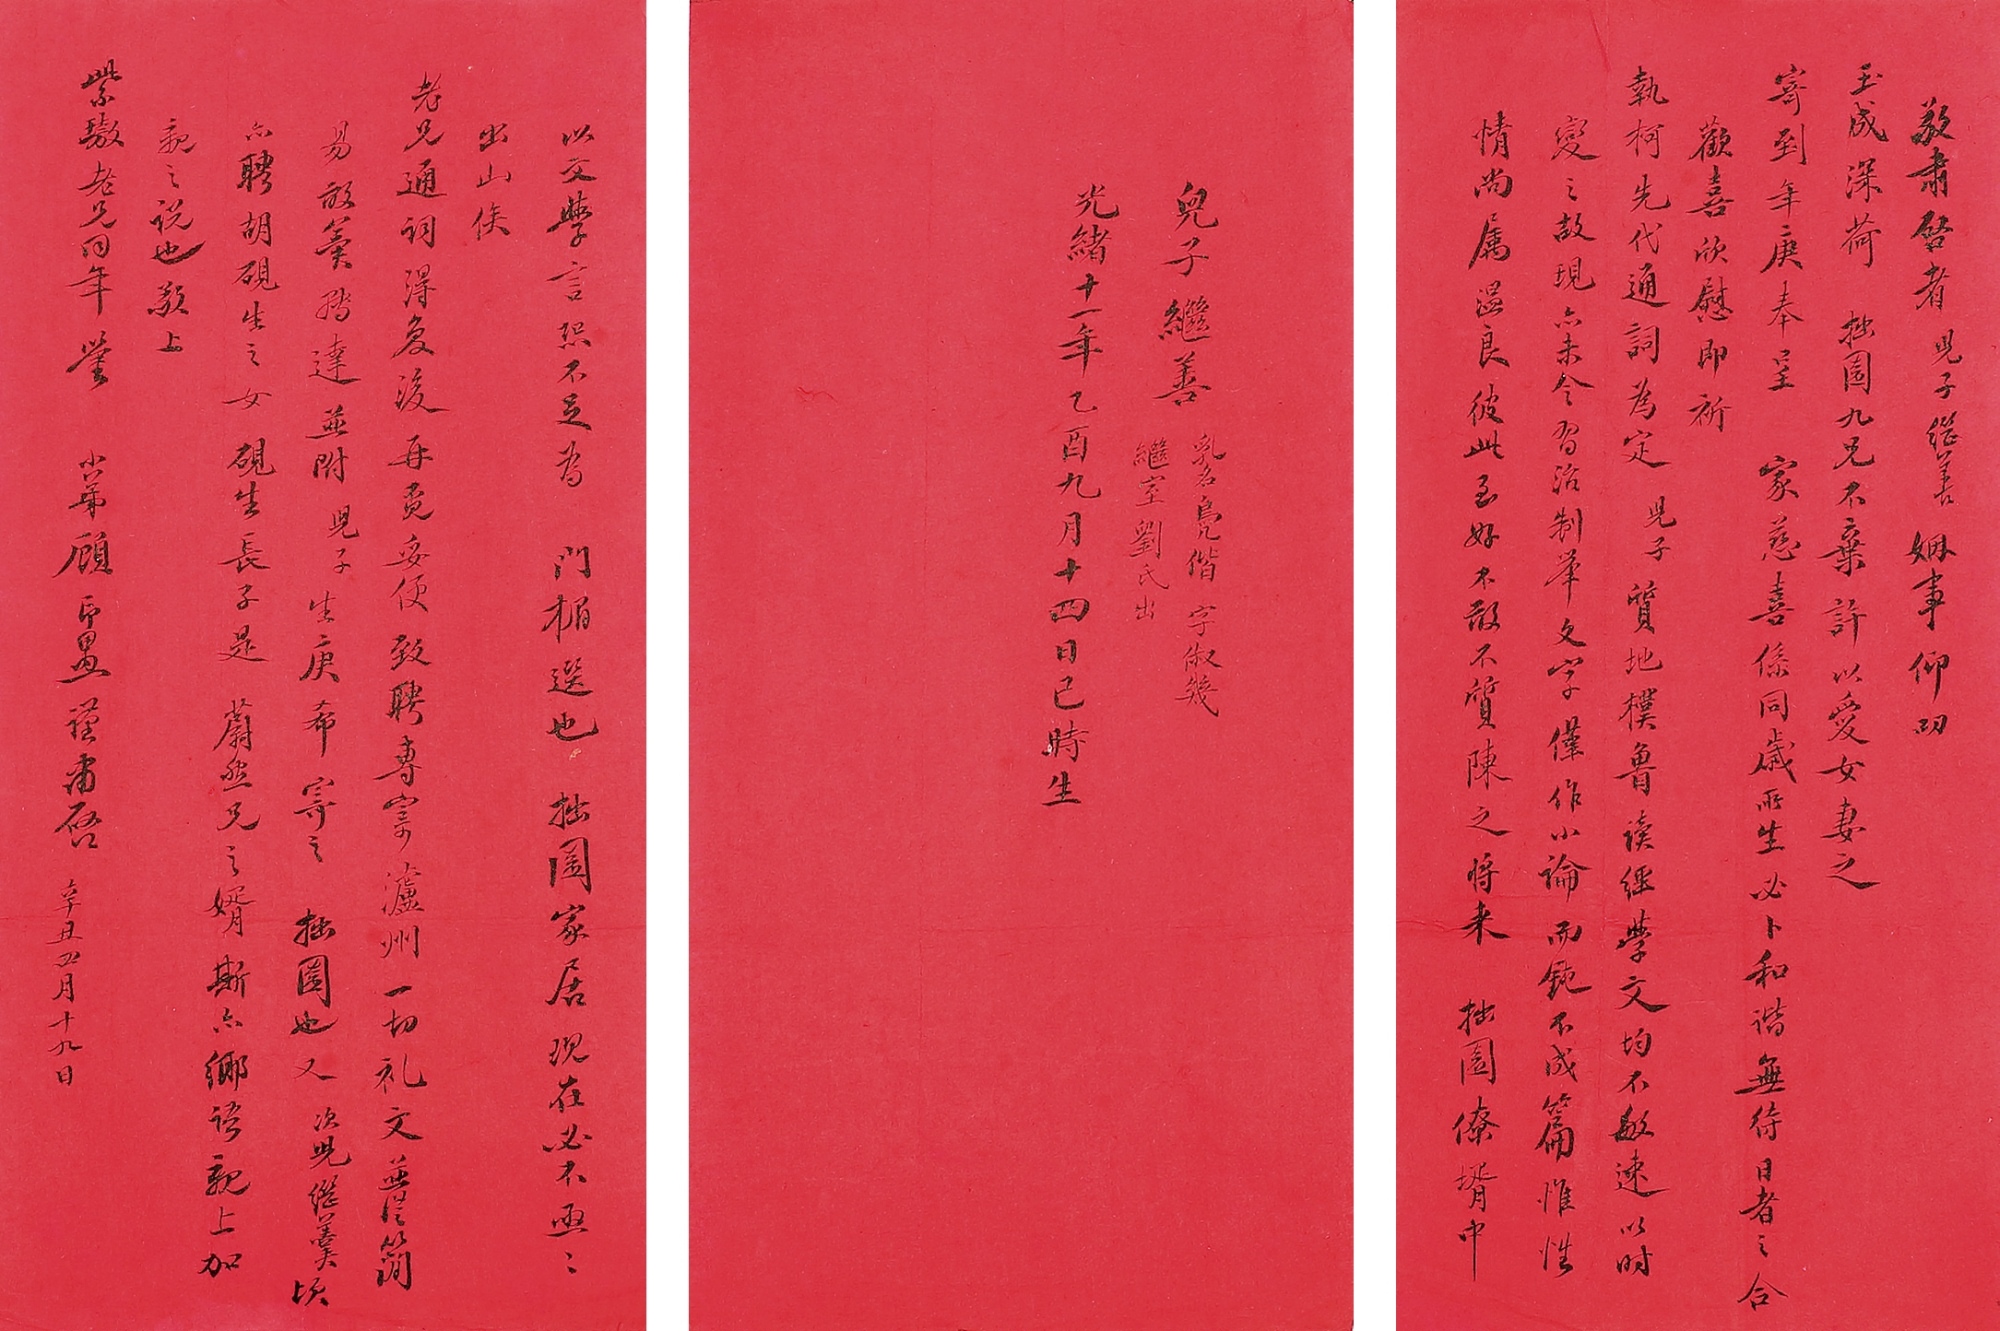 敬肅啓者 兒子繼善 姻事仰叨
玉成深荷 拙園九兄不棄許以愛女妻之
寄到年庚奉呈 家慈喜係同歲所生必卜和諧無待日者之合
歡喜欣慰即祈
執柯先代通詞為定 兒子質地樸魯读經學文均不敏速以时
變之故現亦未令習治制举文字僅作小論而鈍不成篇惟性
情尚属温良彼此至好不敢不質陳之将来 拙園僚壻中
兒子繼善 乳名鳧偕 字俶幾
繼室劉氏出
光緒十一年乙酉九月十四日巳時生
以文學言恐不足為 門楣選也 拙園家居現在必不亟之
出山俟
老兄通词得复後再覓妥便致聘專寄瀘州一切礼文並從简
易敬羮牋達並附 兒子生庚希寄之 拙園也又 次兒繼羮頃
亦聘胡硯生之女硯生長子是 蔚然兄之婿斯亦鄉諺親上加
親之说也敬上
紫璈老兄同年 鑒 小弟顧印愚谨肅啓 辛丑四月十九日